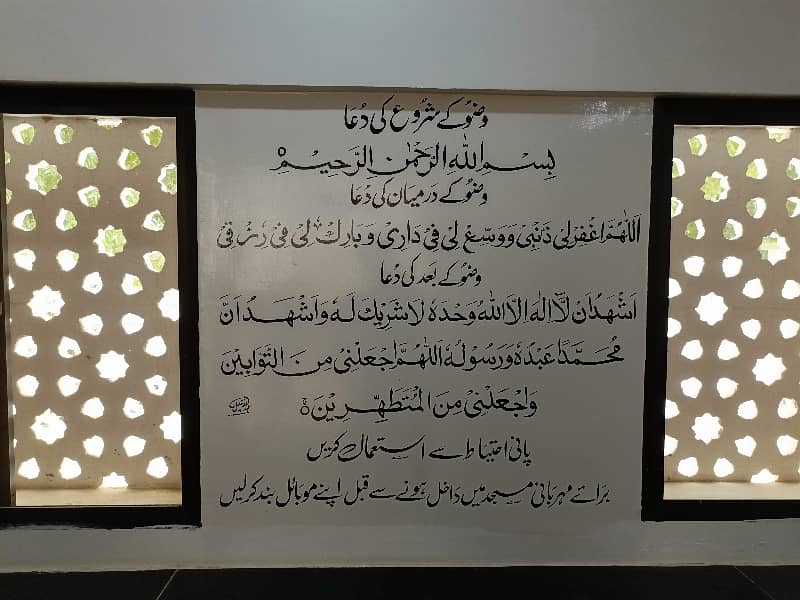 وضو کے شروع کی دُعا
بِسْمِ اللّٰهِ الرَّحْمٰنِ الرَّحِيْمِ
وضو کے درمیان کی دُعا
اَللّٰهُمَّ اغْفِرْلِیْ ذَنْبِیْ وَوَسِّعْ لِیْ فِیْ دَارِیْ وَبَارِكْ لِیْ فِیْ رِزْقِیْ
وضو کے بَعد کی دُعا
اَشْهَدُ اَنْ لَّا اِلٰهَ اِلَّا اللّٰهُ وَحْدَهٗ لَا شَرِيْكَ لَهٗ وَاَشْهَدُ اَنَّ
مُحَمَّدًا عَبْدُهٗ وَرَسُوْلُهٗ اَللّٰهُمَّ اجْعَلْنِیْ مِنَ التَّوَّابِيْنَ
وَاجْعَلْنِیْ مِنَ الْمُتَطَهِّرِيْنَ
پانی احتیاط سے استعمال کریں
برائے مہربانی مسجد میں داخل ہونے سے قبل اپنے موبائل بند کرلیں